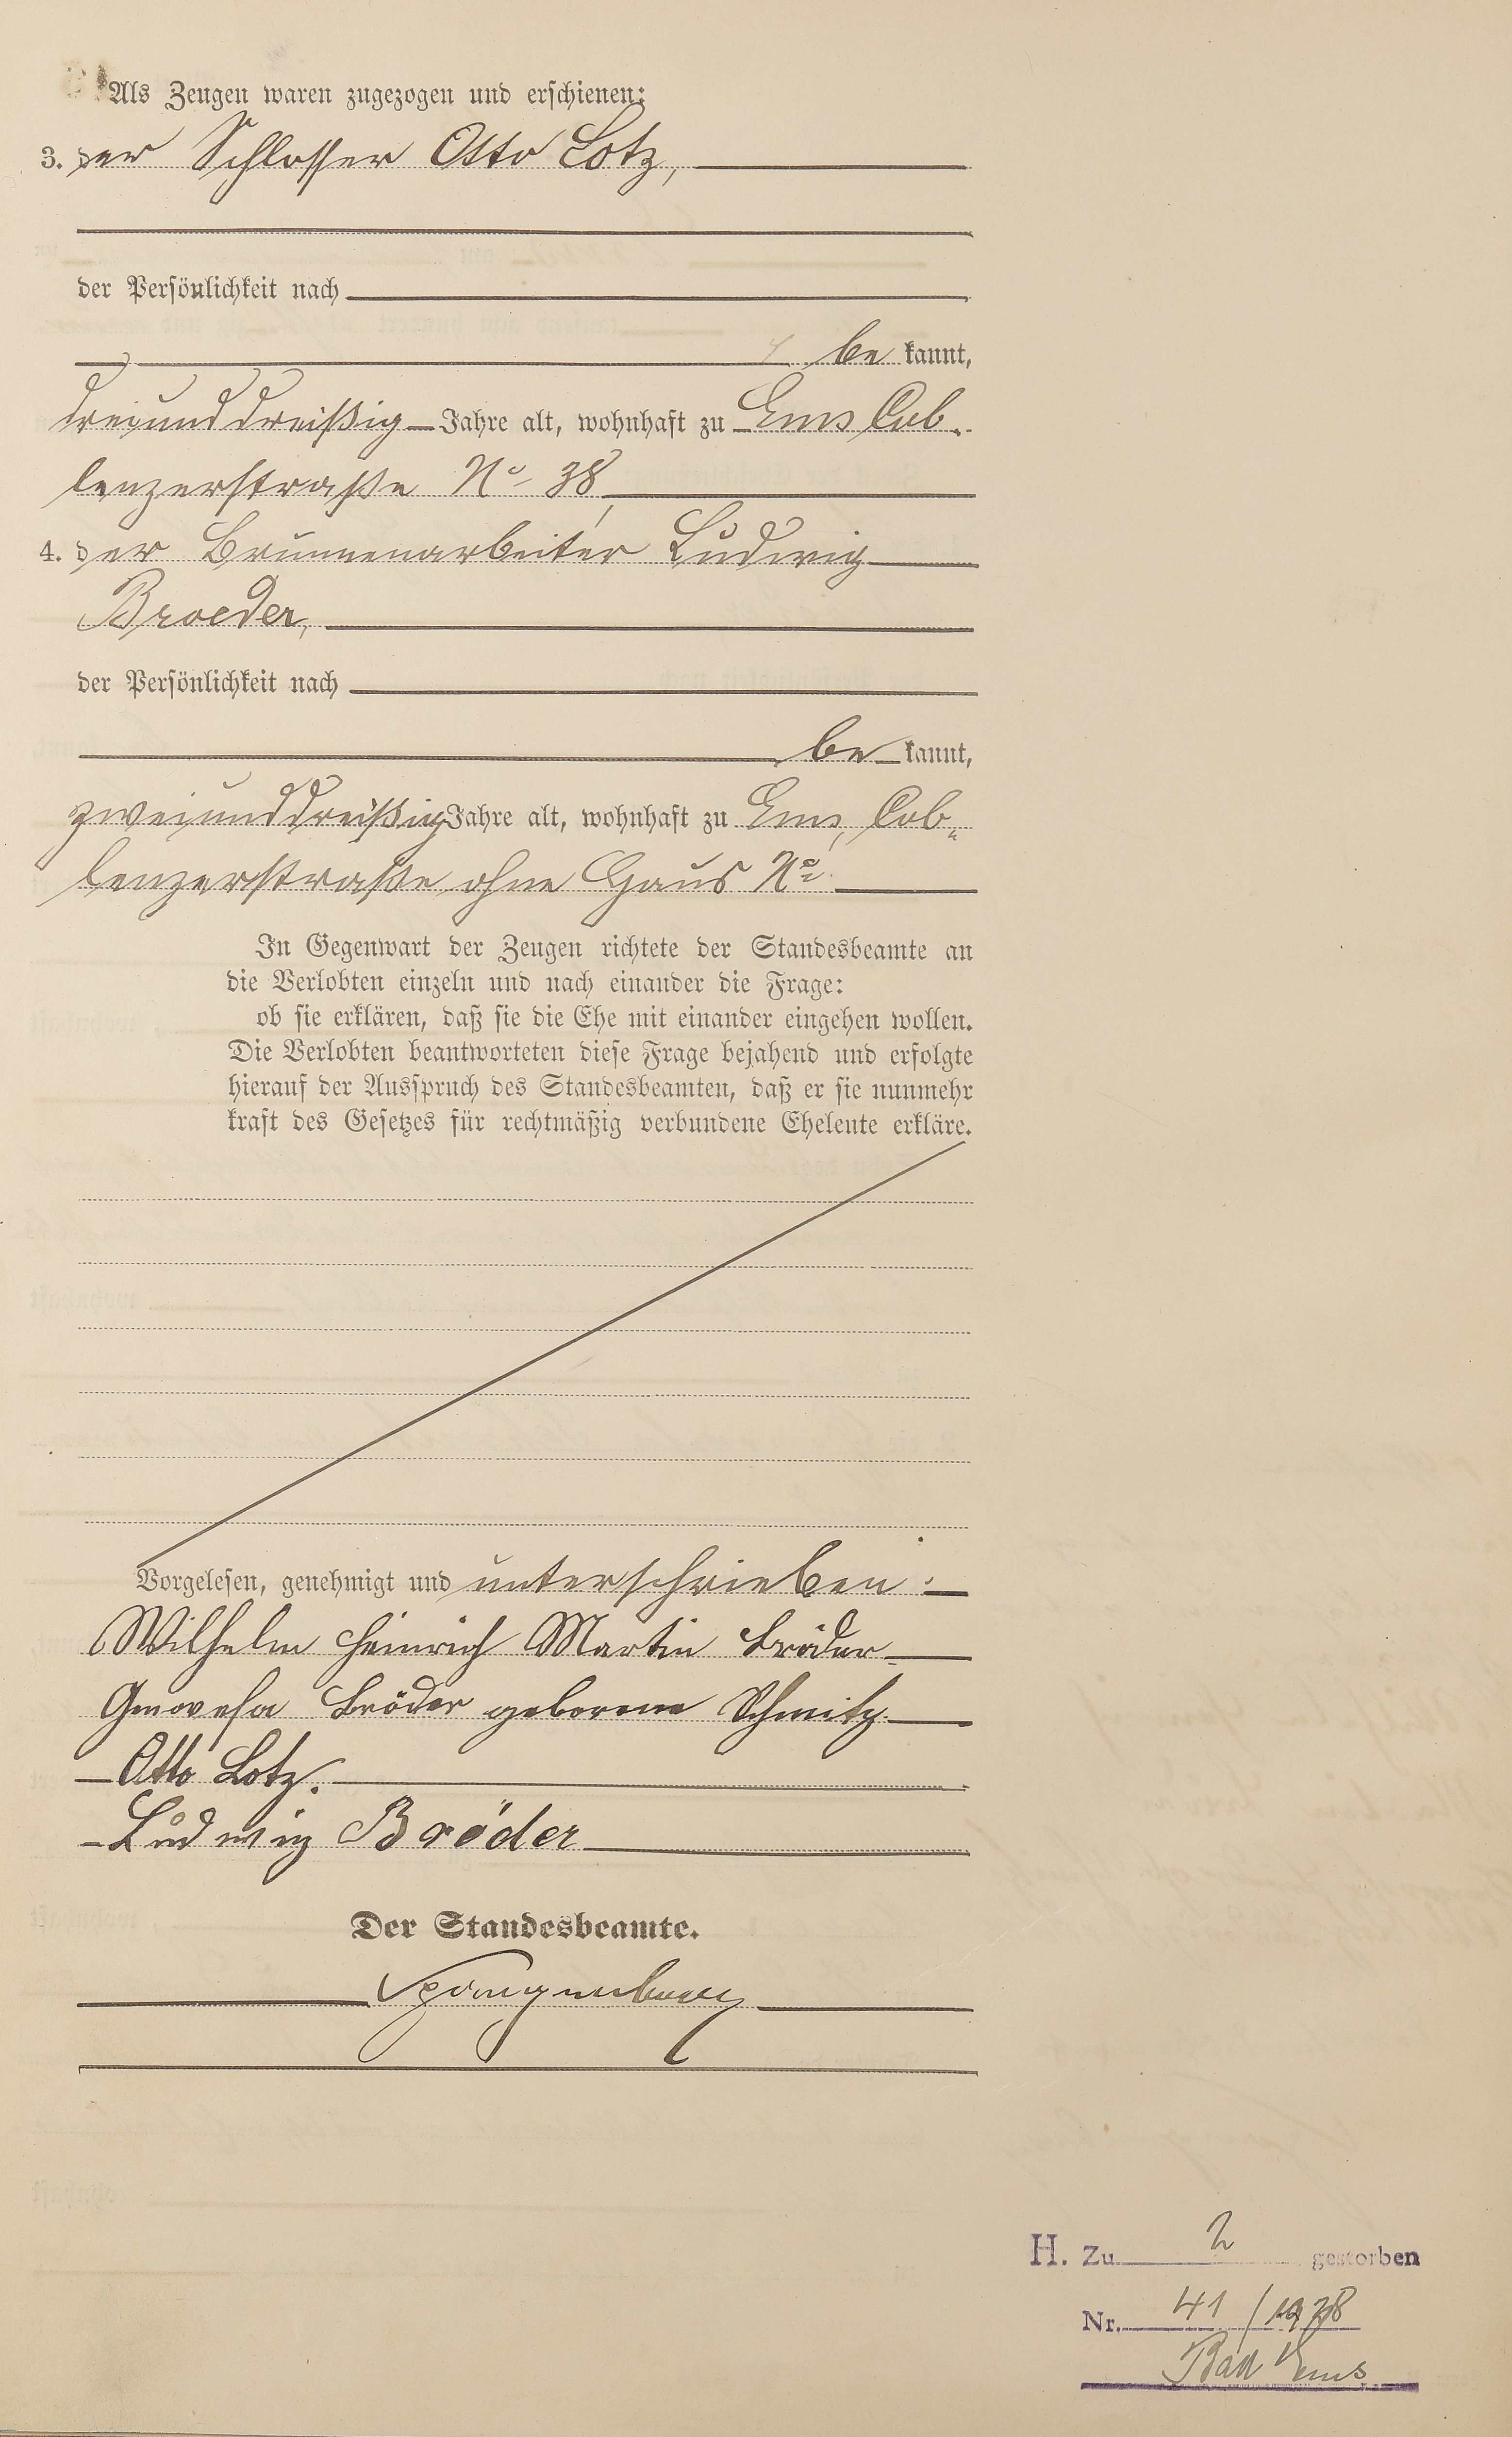 Als Zeugen waren zugezogen und erschienen:
3. der Schlosser Otto Lotz,
der Persönlichkeit nach
be kannt,
dreiunddreißig Jahre alt, wohnhaft zu Ems Cob-
lenzerstraße No 38,
4. der Brunnenarbeiter Ludwig
Broeder,
der Persönlichkeit nach
be kannt,
zweiunddreißig Jahre alt, wohnhaft zu Ems, Cob-
lenzerstraße ohne Haus No.
In Gegenwart der Zeugen richtete der Standesbeamte an
die Verlobten einzeln und nach einander die Frage:
ob sie erklären, daß sie die Ehe mit einander eingehen wollen.
Die Verlobten beantworteten diese Frage bejahend und erfolgte
hierauf der Ausspruch des Standesbeamten, daß er sie nunmehr
kraft des Gesetzes für rechtmäßig verbundene Eheleute erkläre.
Vorgelesen, genehmigt und unterschrieben:
Wilhelm Heinrich Martin Bröder
Genovefa Bröder geborene Schmitz.
Otto Lotz.
Ludwig Bröder
Der Standesbeamte.
Spangenberg
H. Zu 2 gestorben
Nr. 41 / 1938
Bad Ems